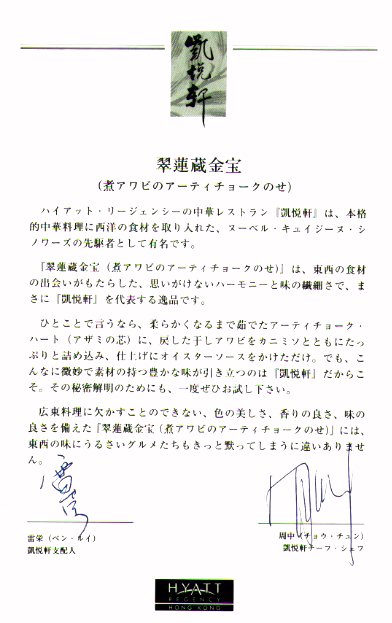 凱悦軒
翠蓮蔵金宝
(煮アワビのアーティチョークのせ)
ハイアット・リージェンシーの中華レストラン『凱悦軒』は、本格
的中華料理に西洋の食材を取り入れた、ヌーベル・キュイジーヌ・シ
ノワーズの先駆者として有名です。
『翠蓮蔵金宝(煮アワビのアーティチョークのせ)』は、東西の食材
の出会いがもたらした、思いがけないハーモニーと味の繊細さで、ま
さに『凱悦軒』を代表する逸品です。
ひとことで言うなら、柔らかくなるまで茹でたアーティチョーク・
ハート(アザミの芯)に、戻した干しアワビをカニミソとともにたっ
ぷりと詰め込み、仕上げにオイスターソースをかけただけ。でも、こ
んなに微妙で素材の持つ豊かな味が引き立つのは『凱悦軒』だからこ
そ。その秘密解明のためにも、一度ぜひお試し下さい。
広東料理に欠かすことのできない、色の美しさ、香りの良さ、味の
良さを備えた『翠蓮蔵金宝(煮アワビのアーティチョークのせ)』には、
東西の味にうるさいグルメたちもきっと黙ってしまうに違いありませ
ん。
雷栄(ベン・ルイ)
凱悦軒支配人
周中(チョウ・チュン)
凱悦軒チーフ・シェフ
HYATT
REGENCY
HONG KONG